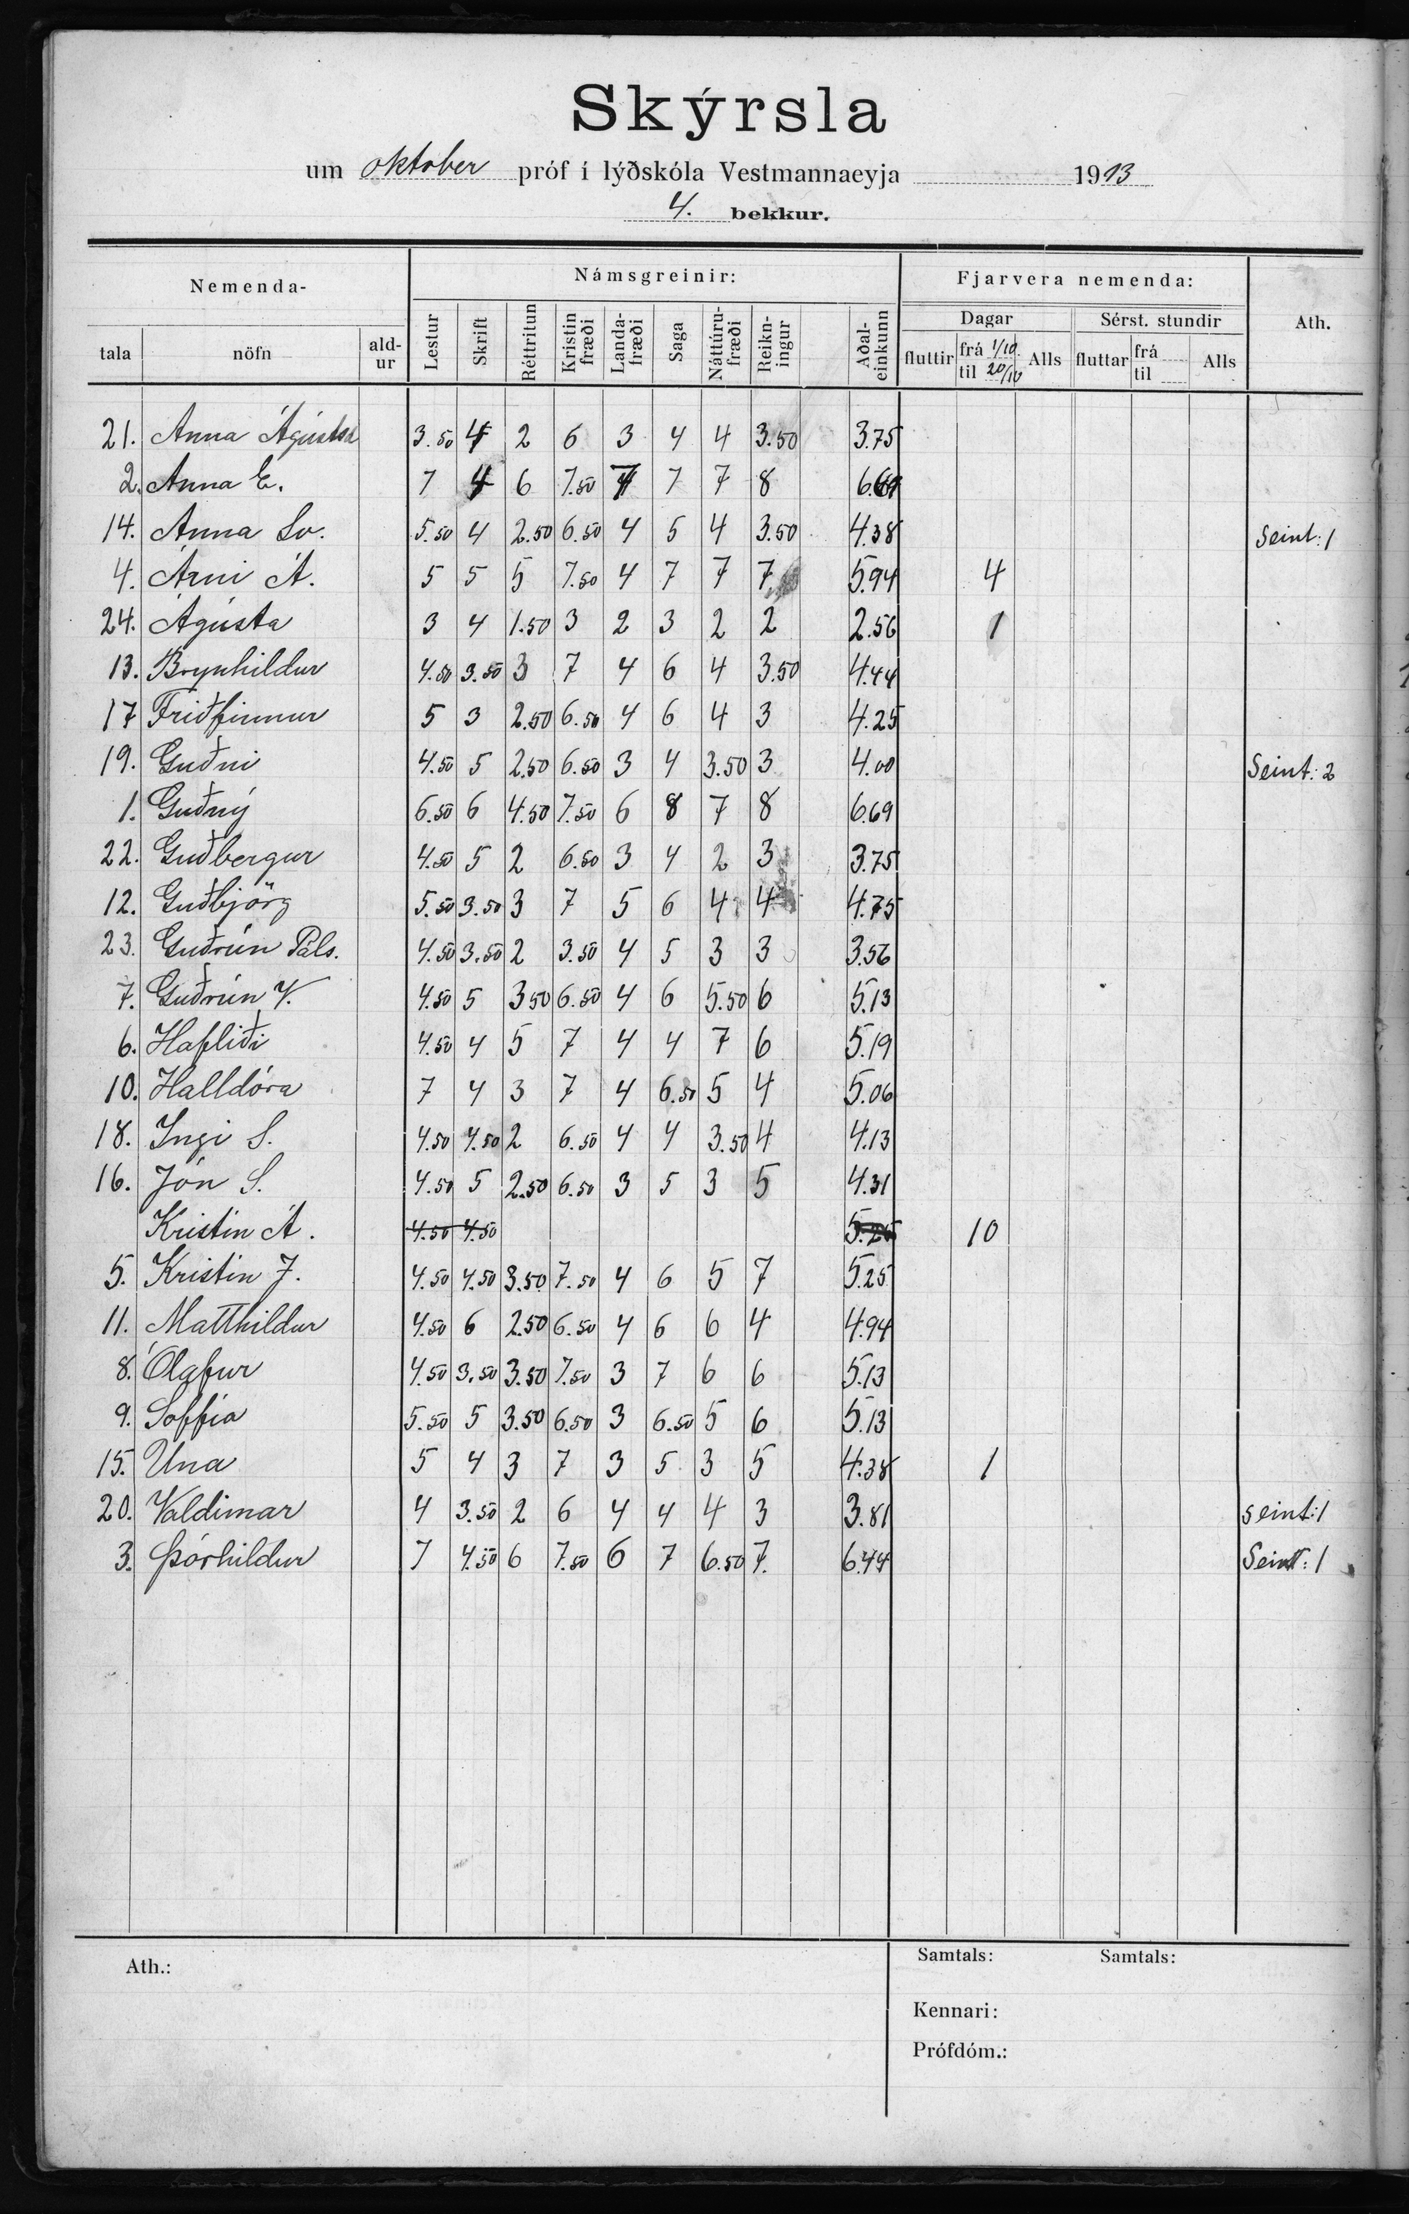 Skýrsla
um oktober próf í lýðskóla Vestmannaeyja 1913
4. bekkur.
Nemenda- Námsgreinir: Fjarvera nemenda: Ath.
tala nöfn ald-ur Lestur Skrift Réttritun Kristin fræði Landa-fræði Saga Náttúru-fræði Reikn-ingur Aðal-einkunn Dagar Sérst. stundir
fluttir frá 1/10 til 20/10 Alls fluttar frá til Alls
21. Anna Ágústa 3.50 4 2 6 3 4 4 3.50 3.75
2. Anna E. 7 4 6 7.50 7 7 8 6.69
14. Anna Sv. 5.50 4 2.50 6.50 4 5 4 3.50 4.38 Seint: 1
4. Árni Á. 5 5 5 7.50 4 7 7 7 5.94 4
24. Ágústa 3 4 1.50 3 2 3 2 2 2.56 1
13. Brynhildur 4.50 3.50 3 7 4 6 4 3.50 4.44
17 Friðfinnur 5 3 2.50 6.50 4 6 4 3 4.25
19. Guðni 4.50 5 2.50 6.50 3 4 3.50 3 4.00 Seint: 2
1. Guðný 6.50 6 4.50 7.50 6 8 7 8 6.69
22. Guðbergur 4.50 5 2 6.50 3 4 2 3 3.75
12. Guðbjörg 5.50 3.50 3 7 5 6 4 4 4.75
23. Guðrún Páls. 4.50 3.50 2 3.50 4 5 3 3 3.56
7. Guðrún V. 4.50 5 3.50 6.50 4 6 5.50 6 5.13
6. Hafliði 4.50 4 5 7 4 4 7 6 5.19
10. Halldóra 7 4 3 7 4 6.50 5 4 5.06
18. Ingi S. 4.50 4.50 2 6.50 4 4 3.50 4 4.13
16. Jón S. 4.50 5 2.50 6.50 3 5 3 5 4.31
Kristin Á. 4.50 4.50 5.25 10
5. Kristin J. 4.50 4.50 3.50 7.50 4 6 5 7 5.25
11. Matthildur 4.50 6 2.50 6.50 4 6 6 4 4.94
8. Ólafur 4.50 3.50 3.50 7.50 3 7 6 6 5.13
9. Soffia 5.50 5 3.50 6.50 3 6.50 5 6 5.13
15. Una 5 4 3 7 3 5 3 5 4.38 1
20. Valdimar 4 3.50 2 6 4 4 4 3 3.81 seint: 1
3. Þórhildur 7 4.50 6 7.50 6 7 6.50 7. 6.44 Seint: 1
Ath.: Samtals: Samtals:
Kennari:
Prófdóm.: